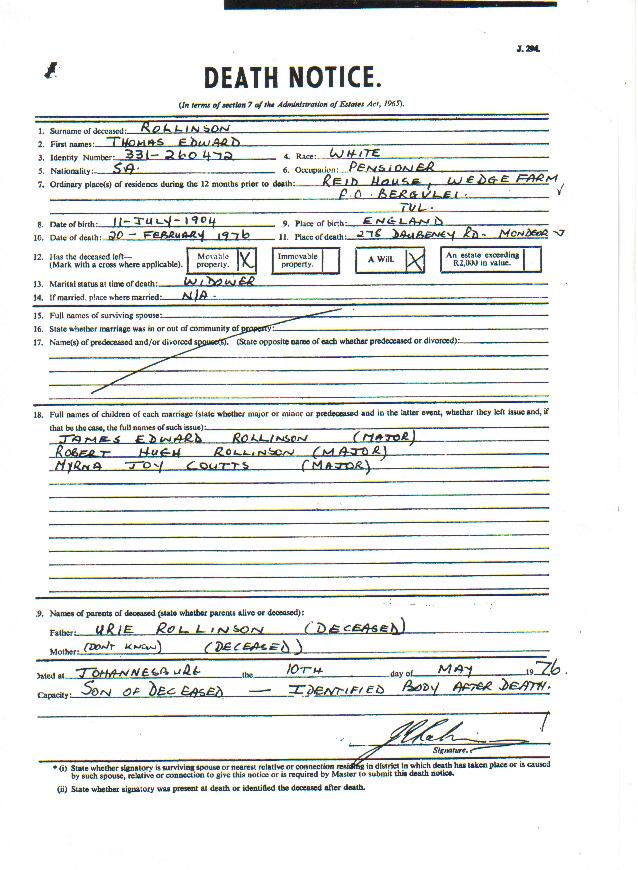 J. 294.
DEATH NOTICE.
(In terms of section 7 of the Administration of Estates Act, 1965).
1. Surname of deceased: ROLLINSON
2. First names: THOMAS EDWARD
3. Identity Number: 331-260472 4. Race: WHITE
5. Nationality: SA. 6. Occupation: PENSIONER
7. Ordinary place(s) of residence during the 12 months prior to death: REID HOUSE, WEDGE FARM
P.O. BERGVLEI.
TVL.
8. Date of birth: 11-JULY-1904 9. Place of birth: ENGLAND
10. Date of death: 20-FEBRUARY 1976 11. Place of death: 278 DAUBENEY RD- MONDEOR
12. Has the deceased left— (Mark with a cross where applicable). Movable property. X Immovable property. A Will. X An estate exceeding R2,000 in value.
13. Marital status at time of death: WIDOWER
14. If married, place where married: N/A.
15. Full names of surviving spouse:
16. State whether marriage was in or out of community of property:
17. Name(s) of predeceased and/or divorced spouse(s). (State opposite name of each whether predeceased or divorced):
18. Full names of children of each marriage (state whether major or minor or predeceased and in the latter event, whether they left issue and, if
that be the case, the full names of such issue):
JAMES EDWARD ROLLINSON (MAJOR)
ROBERT HUGH ROLLINSON (MAJOR)
MYRNA JOY COUTTS (MAJOR)
9. Names of parents of deceased (state whether parents alive or deceased):
Father: URIE ROLLINSON (DECEASED)
Mother: (DON'T KNOW) (DECEASED)
Dated at JOHANNESBURG the 10TH day of MAY 1976.
Capacity: SON OF DECEASED — IDENTIFIED BODY AFTER DEATH.
Signature.
* (i) State whether signatory is surviving spouse or nearest relative or connection residing in district in which death has taken place or is caused
by such spouse, relative or connection to give this notice or is required by Master to submit this death notice.
(ii) State whether signatory was present at death or identified the deceased after death.